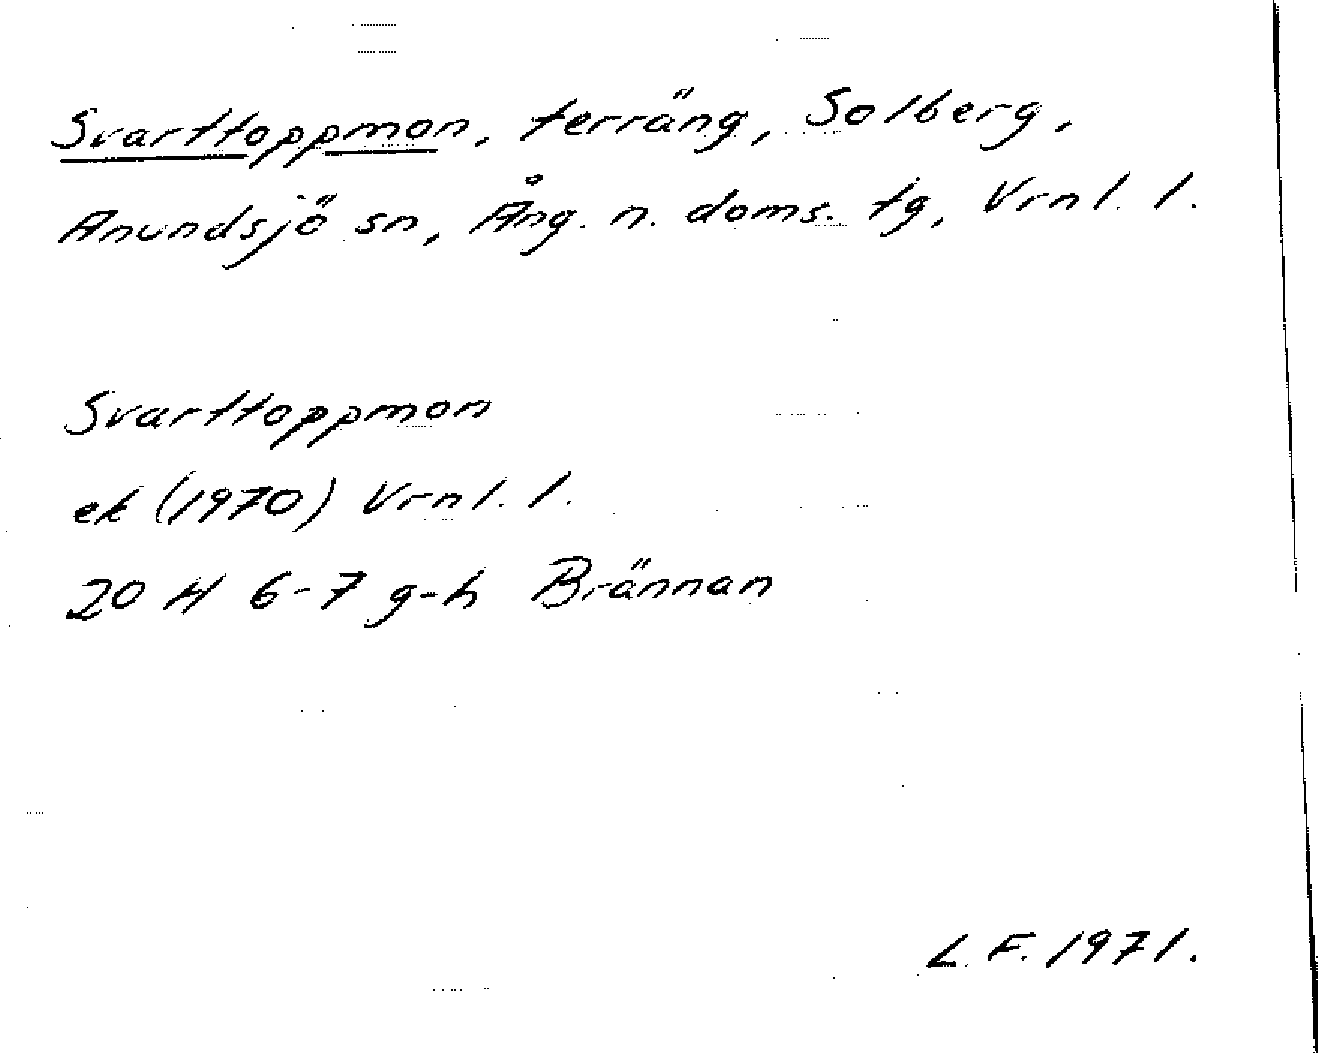 Svarttoppmon, terräng, Solberg,
Anundsjö sn, Ång. n. doms. tg, Vrnl. l.
Svarttoppmon
ek (1970) Vrnl. l.
20 H 6-7 g-h Brännan
L. F. 1971.